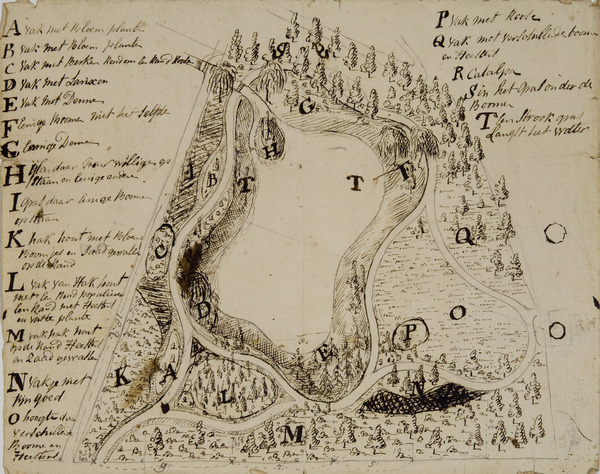 A vak met Bloem plante
B vak met Bloem plante
C vak met Berken rondom de Rand Rode
D vak met Larixen
E vak met Denne
F lenige Boome met het selfde
G lenige Denne
H Eyland daar Treur willige op
staan en lenige andere
I gras daar lenige Boome
op staan
K hak hout met Bloem
Boomjes en Zaad gewasse
op de Rand
L vak van Hak hout
met de Rand populieren
een Rand met Heesters
en vaste plante
M vak hak hout
op de Rand Heesters
en Zaad gewasse
N vakje met
fyn goed
O hoogte daar
verschillende
Boome en
Heesters
P vak met Rode
Q vak met verschillende boome
en Heesters
R Catalpa
S in het Gras onder de
Boome
T een strook gras
langst het water
S
G
H
I
B
T
T
F
C
Q
D
O
P
E
A
K
A
L
N
M